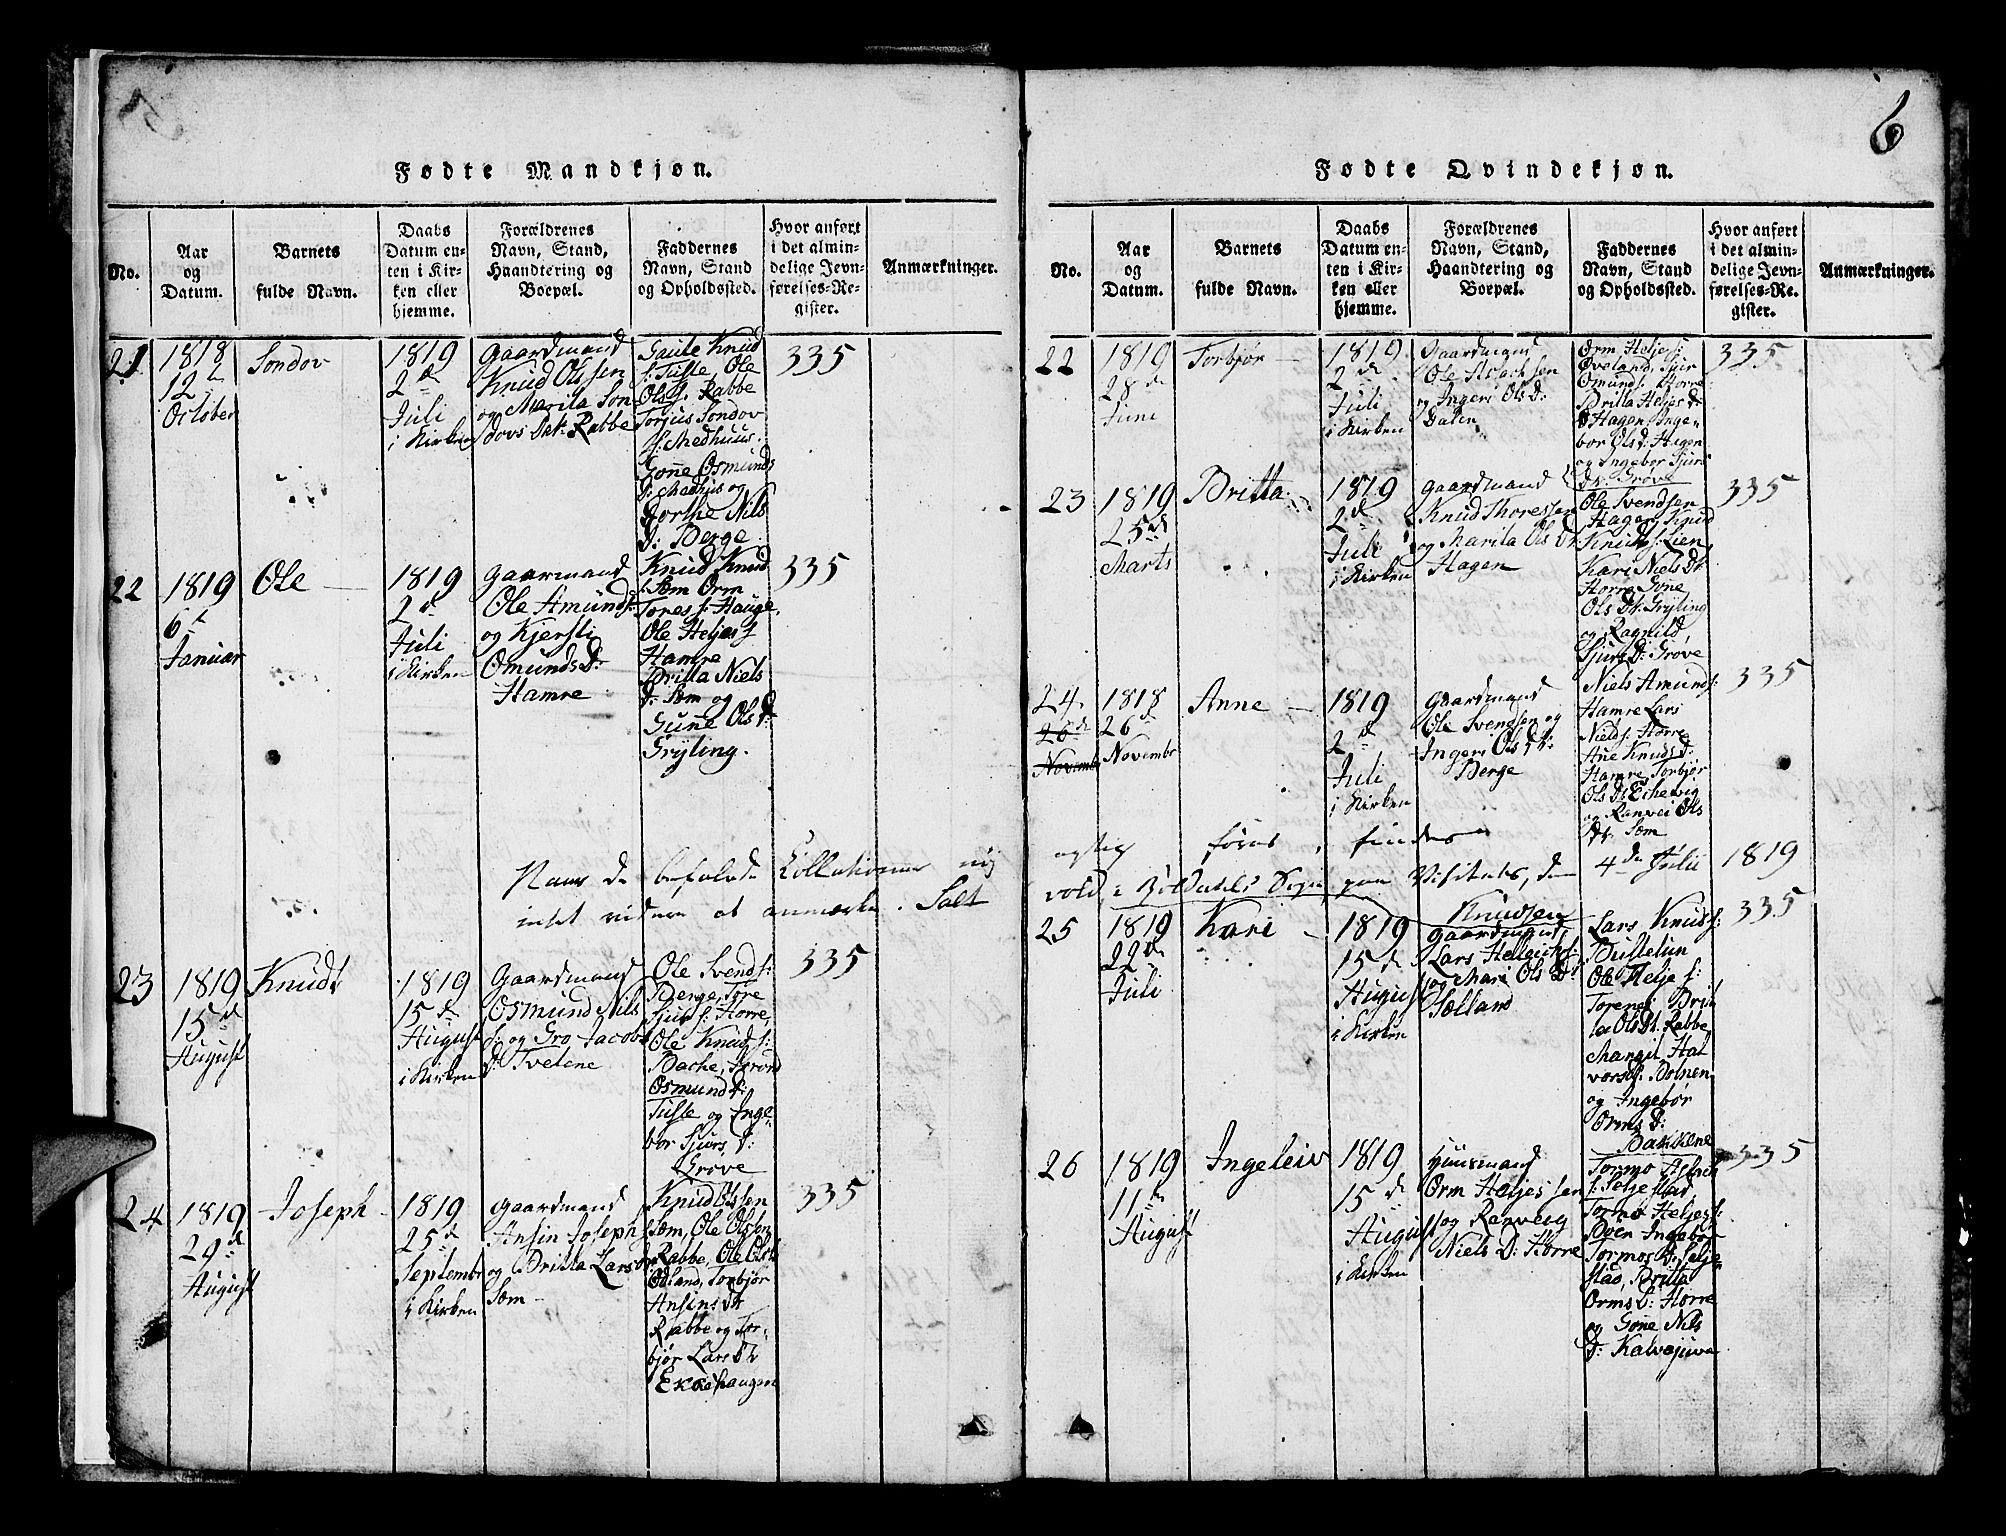 6
Fødte Mandkjøn.
No.
Aar
og
Datum.
Barnets
fulde Navn.
Daabs
Datum en-
ten i Kir-
ken eller
hjemme.
Forældrenes
Navn, Stand,
Haandtering og
Boepæl.
Faddernes
Navn, Stand
og Opholdssted.
Hvor anført
i det almin-
delige Jevn-
førelses-Re-
gister.
Anmærkninger.
21
1818
12
October
Sondov
1819
2d
Juli
i Kirken
Gaardmand
Knud Olssen
og Marita Son-
dovs Datr. Rabbe
Gaute Knud
s: Tufte, Ole
Ols s. Rabbe
Torjus Sondov
s: Medhuus.
Gone Osmunds
d: Medhus og
Dorthe Nils
d: Berge
335
22
1819
6t
Januar
Ole
1819
2d
Juli
i Kirken
Gaarmand
Ole Amunds:
og Kjersti
Omunds D:
Hamre
Knud Knud
s. Sæm Orm
Tores s: Hauge,
Ole Heljes s
Hamre
Britta Niels
d: Sæm og
Gune Ols D:
Gryting.
335
Naar de befalede Collationer
intet videre at anmærke. Salt
23
1819
15d
August
Knudt
1819
15d
August
i Kirken
Gaardmand
Osmund Nils
s: og Gro Jacobs
d: Tvetene
Ole Svends:
Berge, Tore
Sjurs: Horre,
Ole Knuds:
Bache,
Osmund d:
Tufte og Inge-
bor Sjurs d:
Grove
335
24
1819
29d
August
Joseph
1819
25d
Septembr
i Kirken
Gaardmand
Ansin Josephs
og Britta Larsd
Sæm
Knud Olssen
Sæm, Ole Olsen
Rabbe, Ole Ols
Ødland, Torbjør
Ansins Dt
Rabbe og Tor-
bjør Lars Dt
Ekkehaugen
335
Fødte Qvindekjøn.
No.
Aar
og
Datum.
Barnets
fulde Navn.
Daabs
Datum en-
ten i Kir-
ken eller
hjemme.
Forældrenes
Navn, Stand,
Haandtering og
Boepæl.
Faddernes
Navn, Stand
og Opholdssted.
Hvor anført
i det almin-
delige Jevn-
førelses-Re-
gister.
Anmærkninger.
22
1819
28de
Juni
Torbjør
1819
2d
Juli
i Kirken
Gaardmand
Ole Aslachsen
og Ingeri Ols D:
Dalen
Orm Heljes s:
Øveland, Sjur
Omunds: Horre
Britta Heljes d:
Hagen, Inge-
bor Ols d: Hagen
og Ingebor Sjurs
Dt. Grove
335
23
1819
25d
Marts
Britta
1819
2d
Juli
i Kirken
Gaardmand
Knud Thoressen
og Marita Ols Dt
Hagen
Ole Svendsen
Hagen, Knud
Knud s: Lien,
Kari Niels Dt.
Horre, Gone
Ols Dt. Gryting
og Ragnild
Sjurs D: Grove
335
24
26d
Novembr
1818
26d
Novembr
Anne
1819
2d
Juli
i Kirken
Gaardmand
Ole Svendsen og
Ingeri Ols Dt:
Berge
Niels Amunds:
Hamre Lars
Nield s: Horre
Ane Knuds d:
Hamre, Torbjør
Ols Dt.
og Ranvei Ols
Dt. Sæm
335
findes
Visitats, d 4de Julii 1819
25
1819
22d
Juli
Kari
1819
15d
August
i Kirken
Knudsen
Gaardmand
Lars
og Mari Ols D:
Hælland
Lars Knuds:
Busletun
Ole Helje s:
Brit
ta Ols Dt. Rabbe,
Margit Hal
vorsd: Botnen
og Ingebør
Orms D:
Bakkene
335
26
1819
11d
August
Ingeleiv
1819
15d
August
i Kirken
Huusmand
Orm Heljessen
og Ranveig
Niels D: Horre
Tormo Aslach
s: Seljestad
Tormo Heljes s:
Ingebor
Tormos D: Selje-
stad, Britta
Orms D: Horre
og Gone Nils
D: Kalvejuve
335